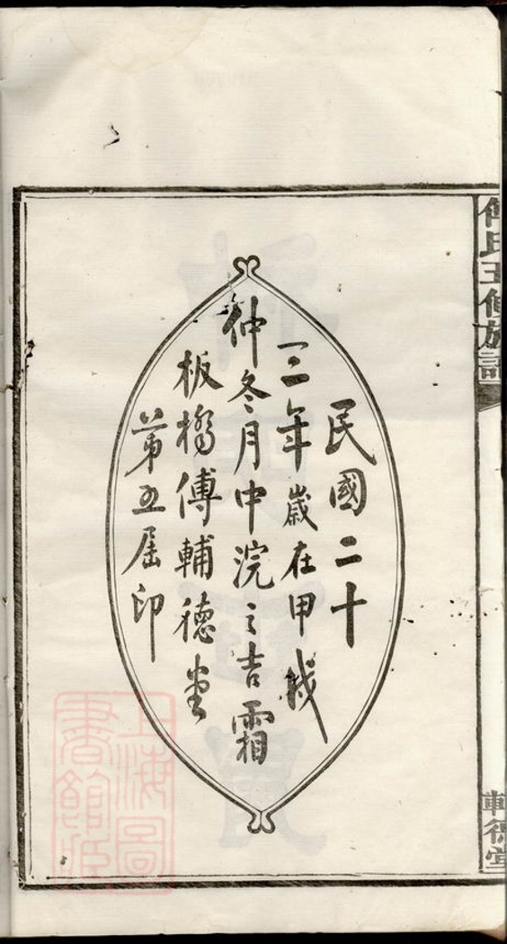 民國二十
三年歲在甲戌
仲冬月中浣之吉霜
板橋傅輔德堂
第五届印
傅氏五修族譜
輔德堂
上海圖
書館藏